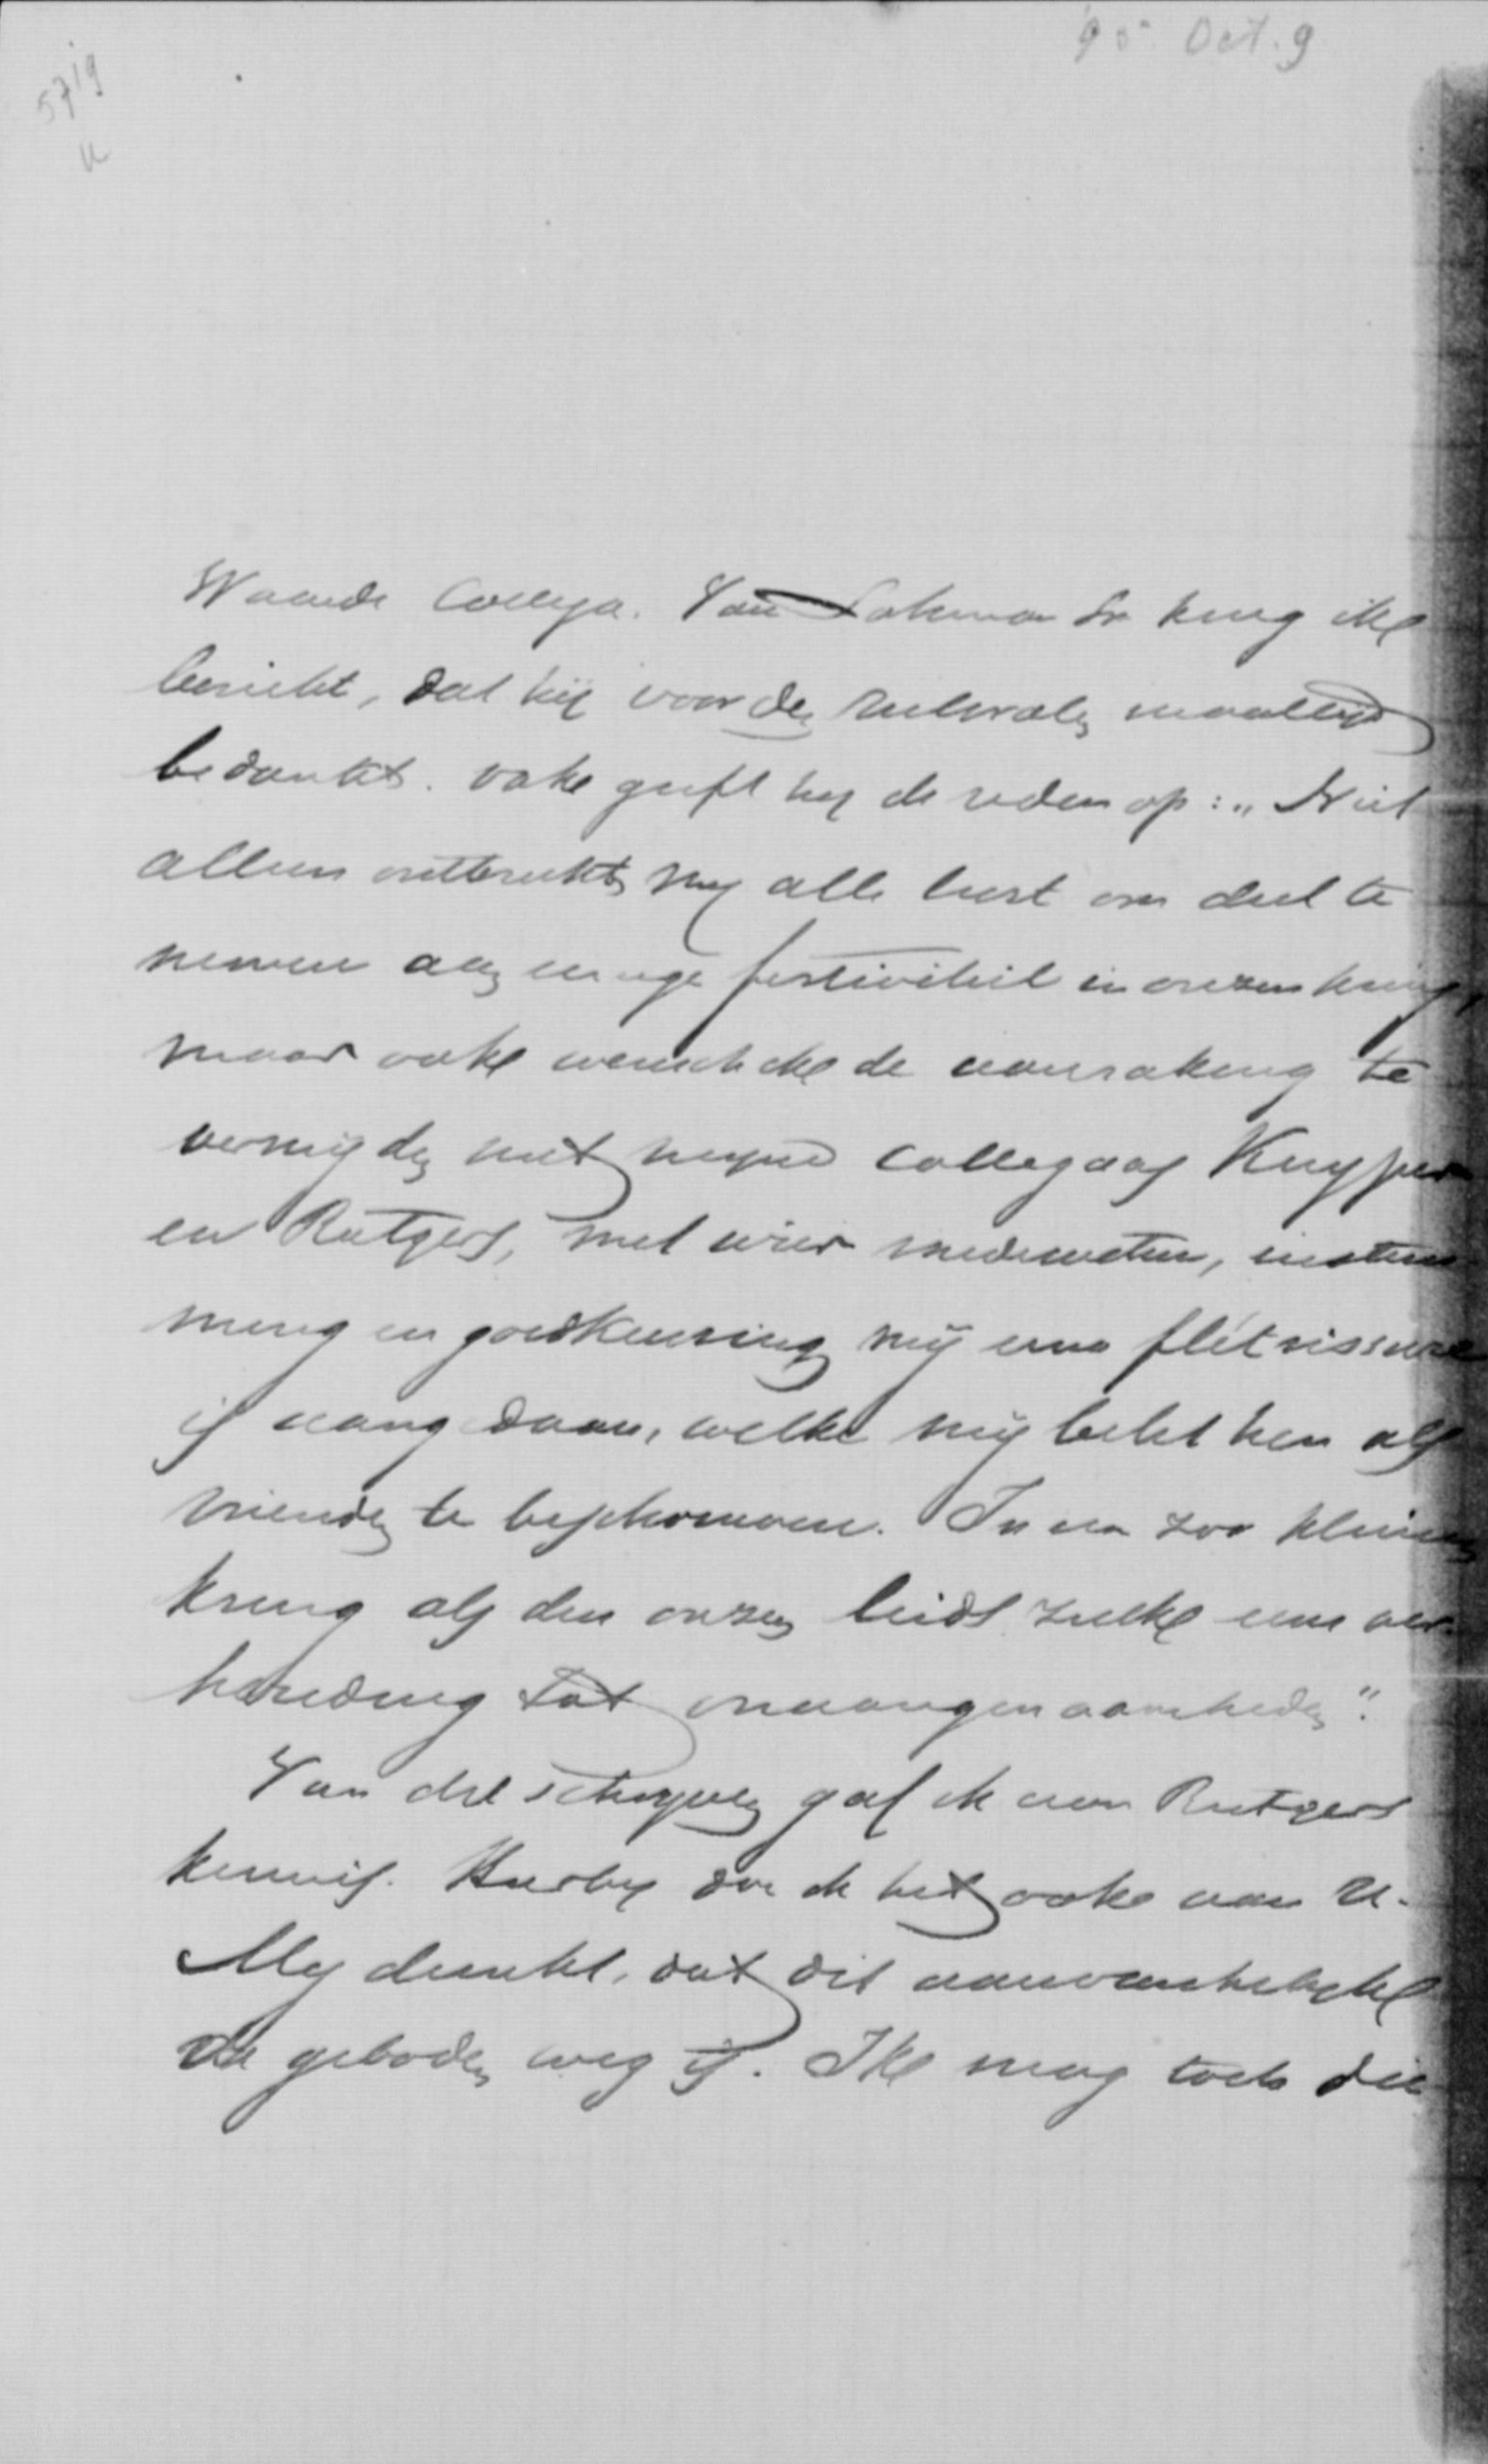 '95 Oct. 9
5719
Waarde Collega. Van Lohman Sr kreeg ik
bericht, dat hij voor den rectoralen maaltijd
bedankt. Ook geeft hij de reden op: „Niet
alleen ontbreekt mij alle lust om deel te
nemen aan eenige festiviteit in onzen kring,
maar ook wensch ik de aanraking te
vermijden met mijne collegaas Kuyper
en Rutgers, met wier medeweten, instem
ming en goedkeuring mij eene flétrissure
is aangedaan, welke mij belet hen als
vrienden te bejegenen. In een zoo kleinen
kring als den onzen leidt zulk eene ver-
houding tot onaangenaamheden".
Van dit schrijven gaf ik aan Rutgers
kennis. Hierbij doe ik het ook aan U.
Mij dunkt, dat dit aanvankelijk
de geboden weg is. Ik mag toch die